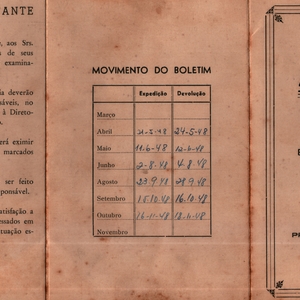 ANTE
, aos Srs.
de seus
examina-
ia deverão
sáveis, no
à Direto-
erá eximir
marcados
ser feito
ponsável.
atisfação a
essados em
tuação es-
MOVIMENTO DO BOLETIM
Expedição Devolução
Março
Abril 24-5-48
Maio 11-6-48 12-6-48
Junho 2-8-48 4-8-48
Agosto 23-9-48 28-9-48
Setembro 15-10-48 16-10-48
Outubro 16-11-48
Novembro